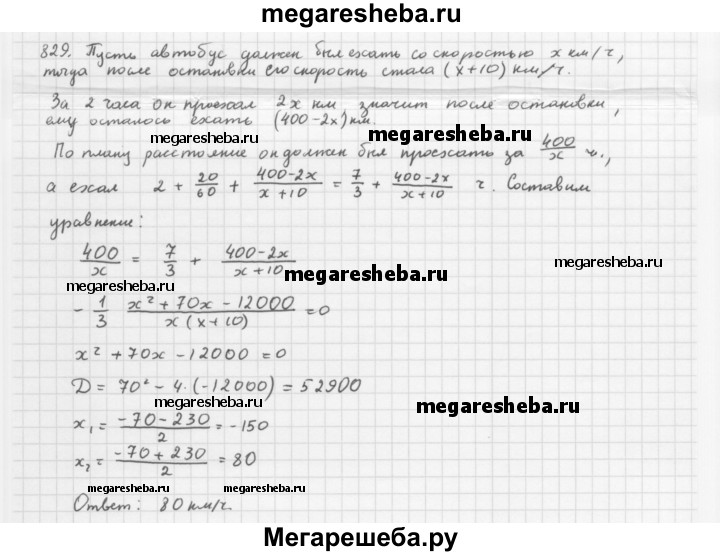 megaresheba.ru
829. Пусть автобус должен был ехать со скоростью x км/ч,
тогда после остановки его скорость стала (x+10) км/ч.
За 2 часа он проехал 2x км значит после остановки,
ему осталось ехать (400-2x) км.
megaresheba.ru
megaresheba.ru
По плану расстояние он должен был проехать за 400/x ч.,
megaresheba.ru
megaresheba.ru
а ехал 2 + 20/60 + (400-2x)/(x+10) = 7/3 + (400-2x)/(x+10) ч. Составим
уравнение:
400/x = 7/3 + (400-2x)/(x+10)
megaresheba.ru
megaresheba.ru
megaresheba.ru
- 1/3 (x² + 70x - 12000)/(x(x+10)) = 0
x² + 70x - 12000 = 0
D = 70² - 4·(-12000) = 52900
megaresheba.ru
megaresheba.ru
x₁ = (-70-230)/2 = -150
x₂ = (-70+230)/2 = 80
megaresheba.ru
megaresheba.ru
Ответ: 80 км/ч.
Мегарешеба.ру